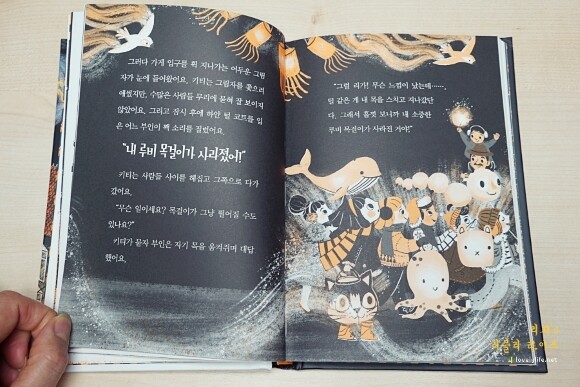 그러다 가게 입구를 휙 지나가는 어두운 그림
자가 눈에 들어왔어요. 키티는 그림자를 쫓으려
애썼지만, 수많은 사람들 무리에 묻혀 잘 보이지
않았어요. 그리고 잠시 후에 하얀 털 코트를 입
은 어느 부인이 꽥 소리를 질렀어요.
"내 루비 목걸이가 사라졌어!"
키티는 사람들 사이를 헤집고 그쪽으로 다가
갔어요.
"무슨 일이세요? 목걸이가 그냥 떨어질 수도
있나요?"
키티가 묻자 부인은 자기 목을 움켜쥐며 대답
했어요.
"그럴 리가! 무슨 느낌이 났는데……,
털 같은 게 내 목을 스치고 지나갔단
다. 그래서 흘깃 보니까 내 소중한
루비 목걸이가 사라진 거야!"
lovelylife.net